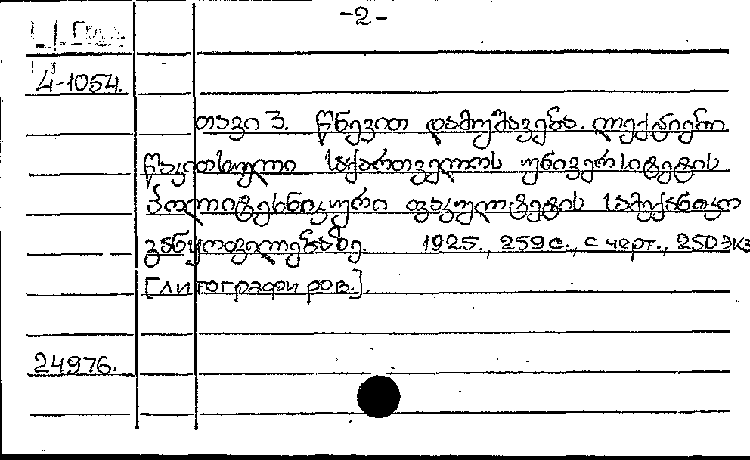 -2-
4-1054.
თავი 3. წნევით დამუშავება. ლექციები
წაკითხული საქართველოს უნივერსიტეტის
პოლიტეხნიკური ფაკულტეტის სამექანიკო
განყოფილებაზე. 1925., 259 с., с черт., 250 экз
[литографиров.].
24976.